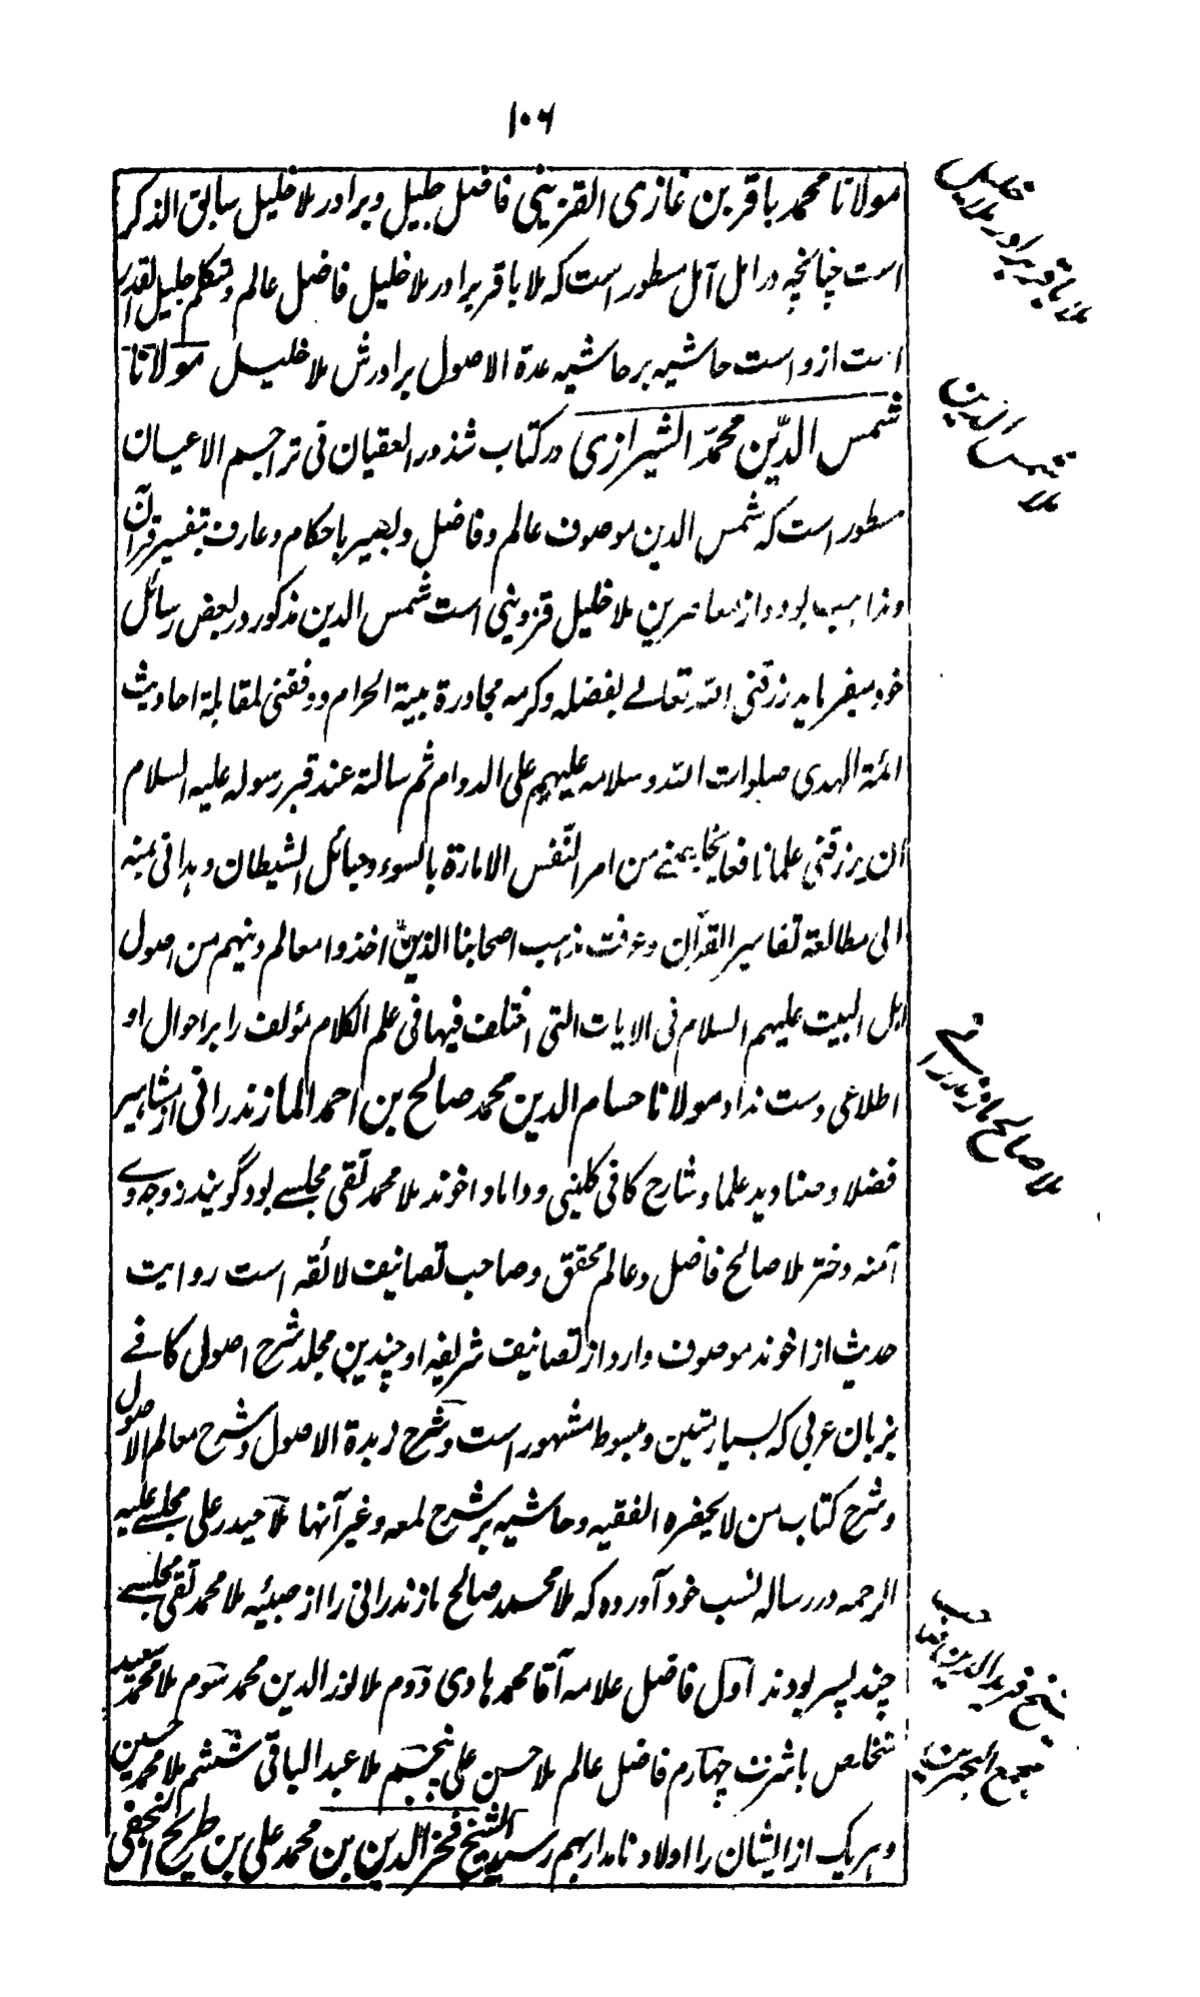 ۱۰۶
مولانا محمد باقر بن غازی القزینی فاضل جلیل و برادر ملا خلیل سابق الذکر
است چنانچه در امل آمل مسطور است که ملا باقر برادر ملا خلیل فاضل عالم و متکلم جلیل القدر
است از و است حاشیه بر حاشیه عدة الاصول برادرش ملا خلیل مولانا
شمس الدّین محمّد الشیرازی در کتاب شذور العقیان فی تراجم الاعیان
مسطور است که شمس الدین موصوف عالم و فاضل و بصیر باحکام و عارف بتفسیر قرآن
و مذاهب بود و از معاصرین ملا خلیل قزوینی است شمس الدین مذکور در بعض رسائل
خود میفرماید رزقنی الله تعالے بفضله و کرمه مجاورة بیة الحرام و وفقنی لمقابلة احادیث
ائمة الهدی صلوات الله و سلامه علیهم علی الدوام ثم سالته عند قبر رسوله علیه السلام
ان یرزقنی علما نافعا من امر النّفس الامارة بالسوء و حبائل الشیطان و هدانی بمنه
الی مطالعة تفاسیر القرآن و عرفت مذهب اصحابنا الذین اخذوا معالم دینهم من اصول
اهل البیت علیهم السلام فی الایات التی اختلف فیها فی علم الکلام مؤلف را بر احوال او
اطلاعی دست نداد مولانا حسام الدین محمد صالح بن احمد المازندرانی از مشاهیر
فضلا و صنادید علما و شارح کافی کلینی و داماد اخوند ملا محمد تقی مجلسے بود گویند زوجه وے
آمنه دختر ملا صالح فاضل و عالم محقق و صاحب تصانیف لائقه است روایت
حدیث از اخوند موصوف دارد از تصانیف شریفه او چندین مجلد شرح اصول کافے
بزبان عربی که بسیار متین و مبسوط مشهور است و شرح زبدة الاصول و شرح معالم الاصول
و شرح کتاب من لایحضره الفقیه و حاشیه بر شرح لمعه و غیر آنها ملا حیدر علی مجلسے علیه
الرحمه در رساله نسب خود آورده که ملا محمد صالح مازندرانی را از صبیّه ملا محمد تقی مجلسے
چند پسر بودند اول فاضل علامه آقا محمد هادی دوم ملا نور الدین محمد سوم ملا محمد سعید
متخلص باشرف چهارم فاضل عالم ملا حسن علی پنجم ملا عبد الباقی ششم ملا محمد حسین
و هر یک از ایشان را اولاد نامدار بهم رسید الشیخ فخر الدین بن محمد علی بن طریح النجفی
ملا باقر برادر ملا خلیل
ملا شمس الدین
ملا صالح مازندرانے
شیخ فخر الدین صاحب
مجمع البحرین